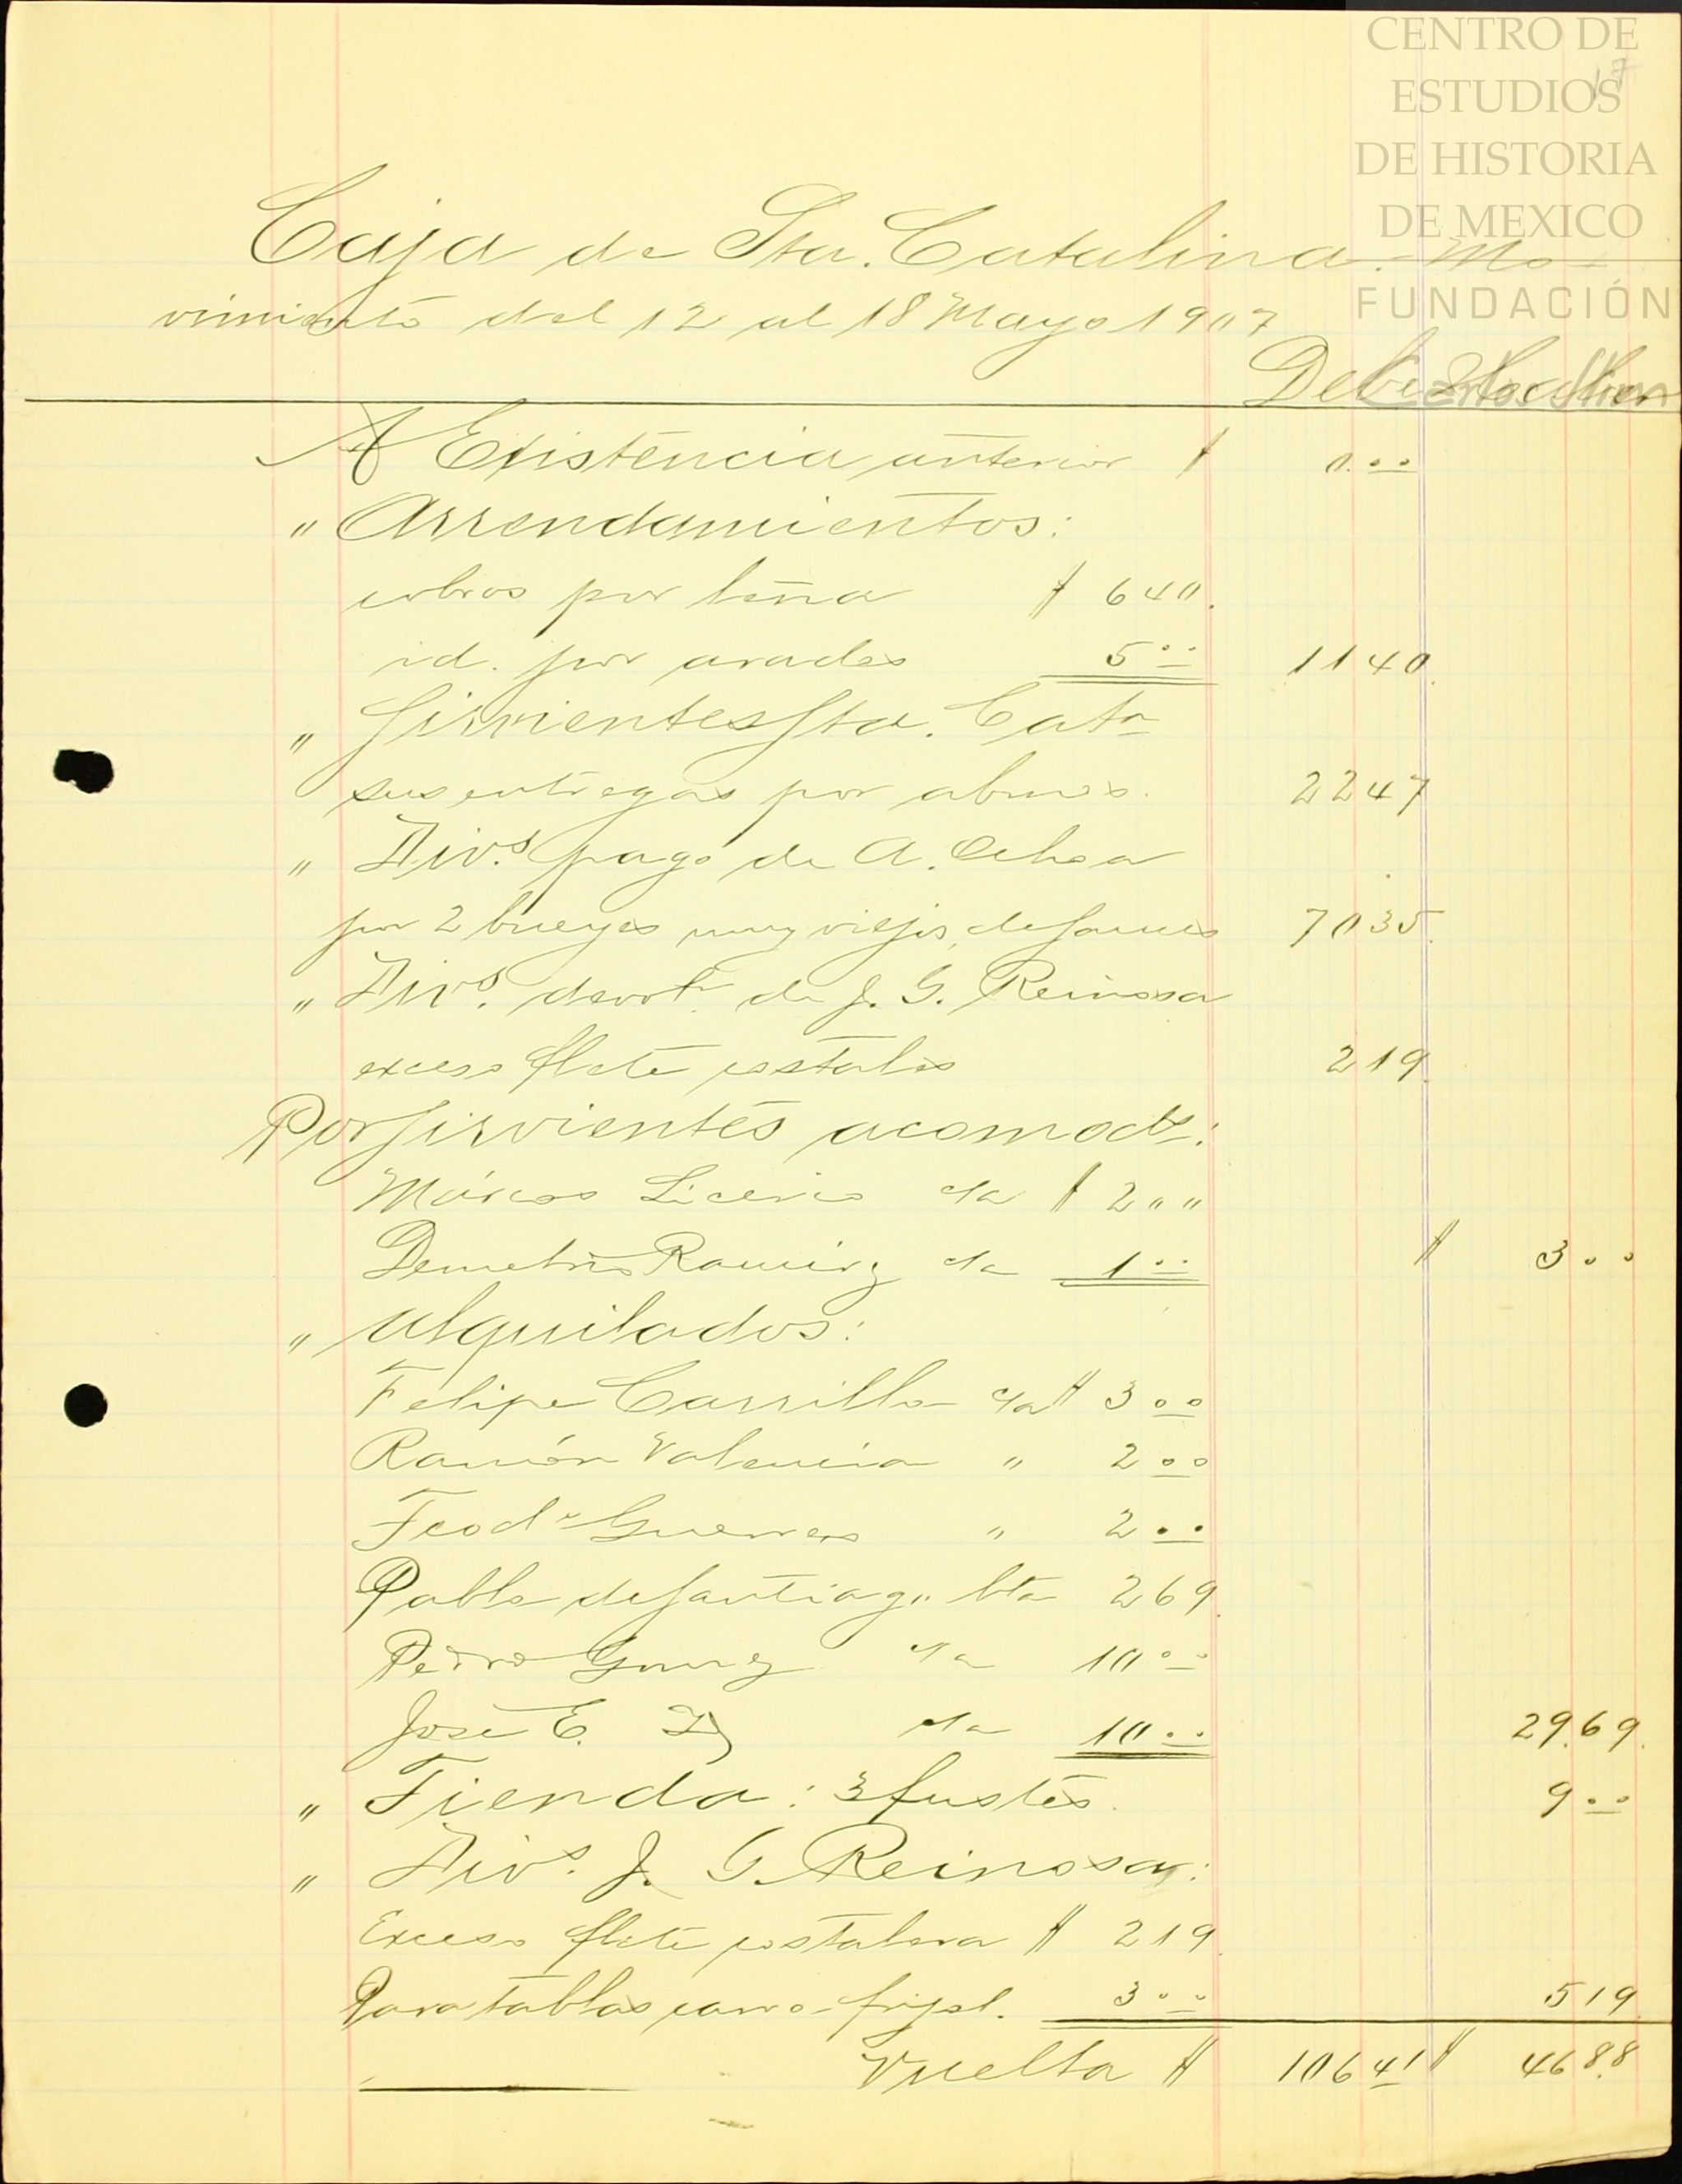 CENTRO DE
ESTUDIOS
DE HISTORIA
DE MEXICO
FUNDACIÓN
17
Caja de Sta. Catalina.- Mo-
vimiento del 12 al 18 Mayo 1907
Debe Haber
A Existencia anterior $ 0.00
" Arrendamientos:
cobros por leña $ 640.
id. por arados 5.00 1140.
" Sirvientes Sta. Cata
sus entregas por abonos. 2247
" Divs. pago de A. Ochoa
por 2 bueyes muy viejos, de 7035.
" Divs. de J. G. Reinosa
exceso flete costales 219.
Por Sirvientes acomods:
Márcos Licerio cta $ 2 " "
Demetrio Ramirz cta 1.00 $ 3.00
" Alquilados:
Felipe Carrillo cta $ 3.00
Ramón Valencia " 2.00
Teodo Guerrero " 2.00
Pablo de Santiago lta 269.
Pedro Gomez cta 10.00
José E. cta 10.00 29.69.
" Tienda: 3 fustes. 9.00
" Divs. J. G. Reinosa:
Exceso flete costalera $ 219.
Para tablas carro 3.00 519.
Vuelta $ 10641 $ 46.88